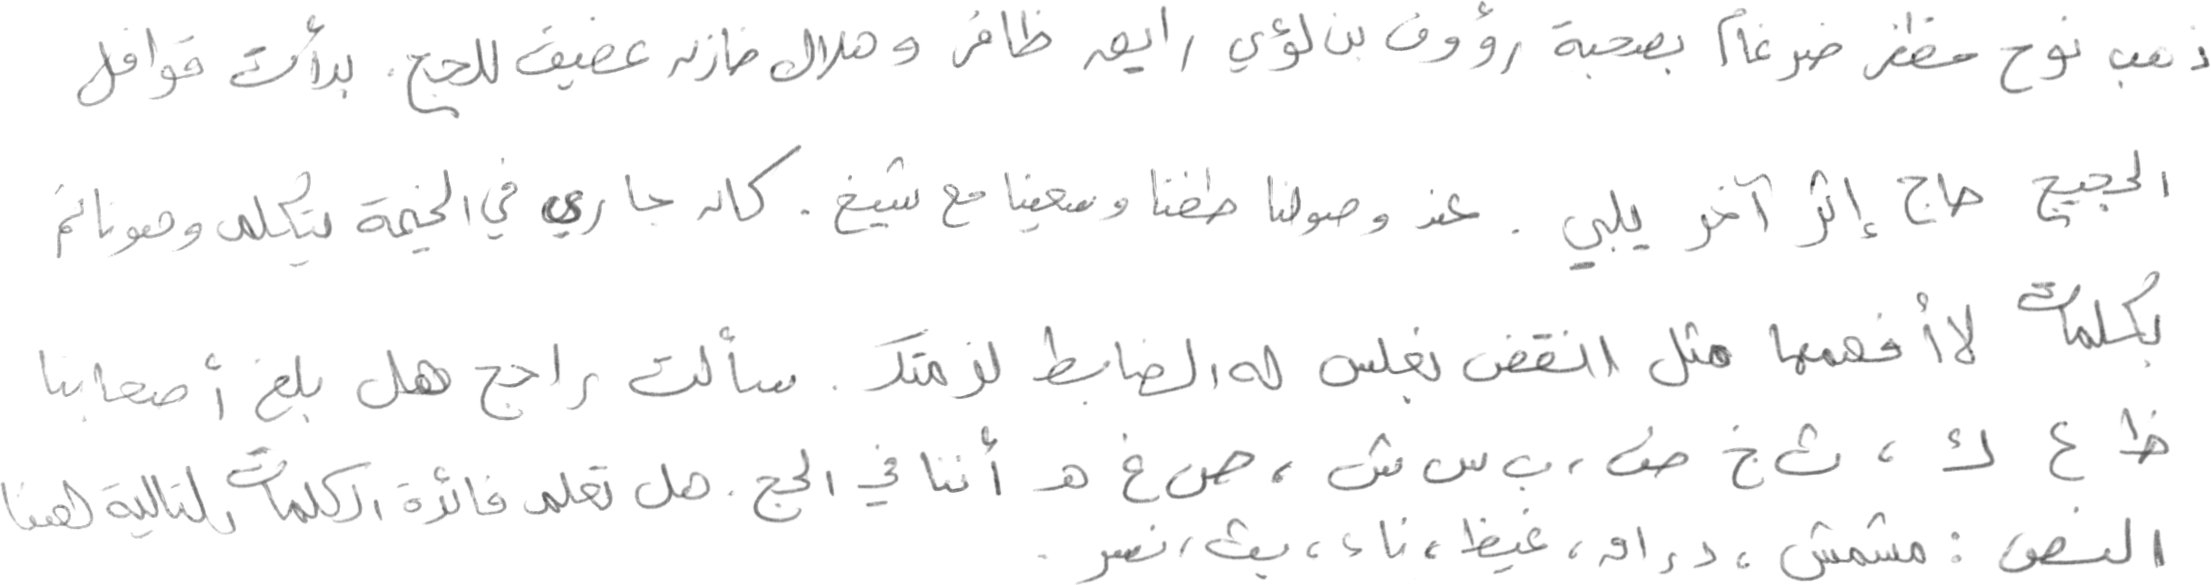 ذهب نوح مظفر ضرغام بصحبة رؤوف بن لؤي رايق ظافر وهلال خازن عفيف للحج. بدأت قوافل
الحجيج حاج إثر آخر يلبي. عند وصولنا طفنا وسعينا مع شيخ. كان جاري في الخيمة يتكلم وهو نائم
بكلمات لا أفهمها مثل انقض بغلس له الضابط لزمتك. سألت راجح هل بلغ أصحابنا
ظ ع ك، ث خ ض، ب س ش، ص غ هـ أننا في الحج. هل تعلم فائدة الكلمات التالية لهذا
النص: مشمش، دراق، غيظ، ناء، بث، نسر.